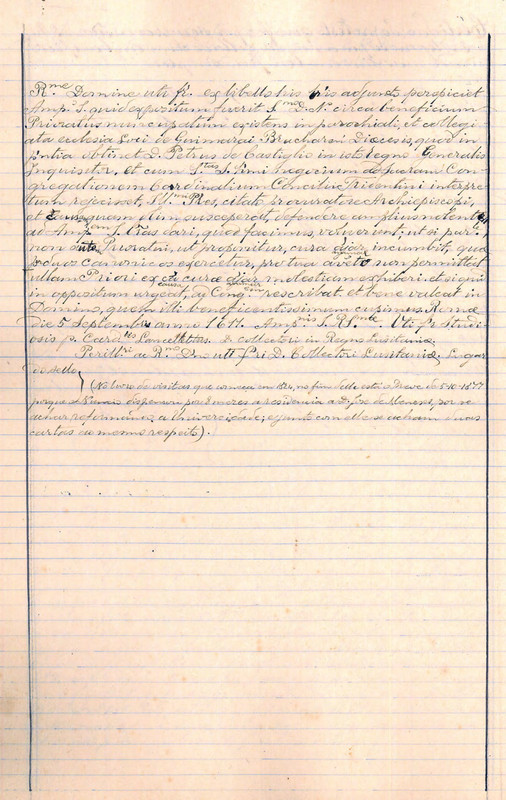 Rme Domine uti fr. ex libello his adjuncto perspiciet
Ampª S. quid expositum fuerit Smo D. N. circa beneficium
Prioratus nuncupatum existens in parochiali, et collegi
ata eclesia loci de Guimarai Bracharen Diocesis, quod in
obtinet D. Petrus de Castiglio in isto regno Generalis
Inquisitor, et cum Stas S. huni negocium ad sacram Con
gregationem Cardinalium Concilii Tridentini interpre
tum rejecisset, Ill.mi PP.es, citato procuratore Archiepiscopi,
et eam quam olim susceperat, defendere amplius nolente
ac Amp S. has dari, quod facimus, voluerunt, ut si
non Prioratui, ut proponitur, cura incumbit, quæ
canonicos exercetur, pro tua non permittat
ullam Priori ex causa curæ molestiam exhiberi. et si quid
in oppositum urgeat, Cong. rescribat. et bene valeat in
Domino, quem illi beneficentissimum cupimus. Romæ
die 5 Septembris anno 1611. Amp. S. Uti fr. Studi
osis p. Cardlis Lancellotus. D. collectori in Regno Lusitaniæ.
Perillri ac Rmo Dno uti fri D. Collectori Lusitaniæ. Lugar
do sello
(No livro de visitas que começa em 1824, no fim delle está o Breve de 5-10-1577
porque se dispensou por 3 mezes a residencia a D. José de Menezes, por se
achar reformando a Universidade; e junto com elle se acham duas
cartas ao mesmo respeito).